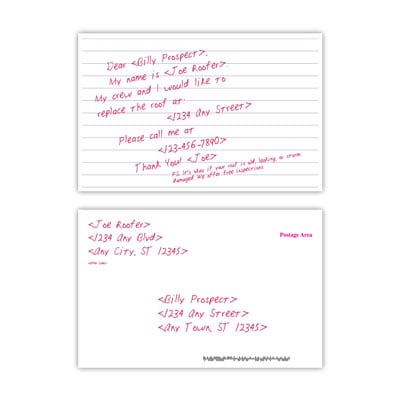 Dear <Billy Prospect>,
My name is <Joe Roofer>.
My crew and I would like to
replace the roof at:
<1234 Any Street>
Please call me at
<123-456-7890>
Thank You! <Joe>
P.S. It's okay if your roof is old, leaking, or storm
damaged. We offer free inspections.
<Joe Roofer>
<1234 Any Blvd>
<Any City, ST 12345>
Postage Area
<Billy Prospect>
<1234 Any Street>
<Any Town, ST 12345>